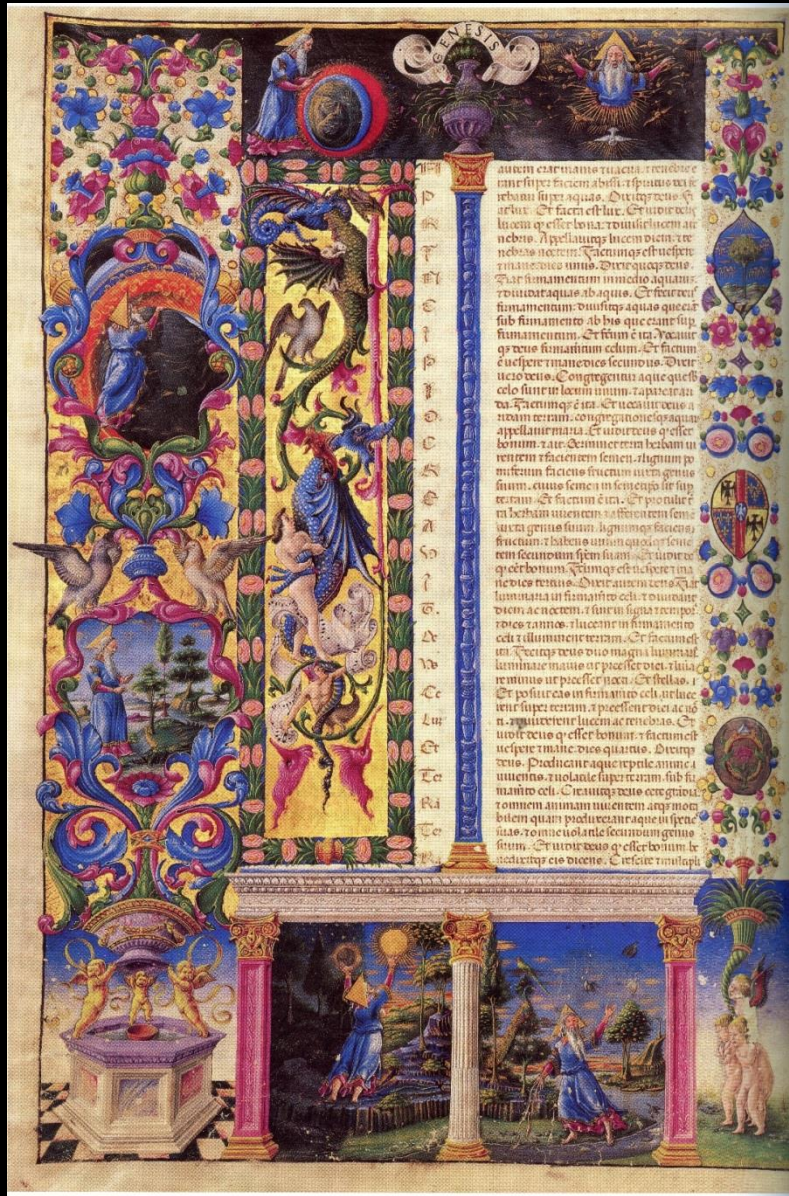 GENESIS
I
N
P
R
I
N
C
I
P
I
O
C
R
E
A
V
I
T
D
E
V
S
Ce
Lum
Et
Te
Ra
Te
Ra
autem erat inanis et uacua. et tenebre e
rant super faciem abissi. et spiritus dei fe
rebatur super aquas. Dixitque deus. Fi
at lux. Et facta est lux. Et uidit deus
lucem q esset bona: et diuisit lucem a te
nebris. Appellauitque lucem diem. et te
nebras noctem. Factumque est uespere
et mane dies unus. Dixit quoque deus.
Fiat firmamentum in medio aquarum
et diuidat aquas ab aquis. Et fecit deus
firmamentum. diuisitque aquas que erant
sub firmamento ab his que erant sup
firmamentum. Et fctum e ita. Vocauit
qs deus firmamtum celum. Et factum
e uespere et mane dies secundus. Dixit
uero deus. Congregentur aque que sb
celo sunt in locum unum. et apareat ari
da. Factumque e ita. Et uocauit deus a
ridam terram. congregationesque aquar
appellauit maria. Et uidit deus q esset
bonum. et ait. Germinet terra herbam ui
rentem et facientem semen. et lignum po
miferum faciens fructum iuxta genus
suum. cuius semen in semetipso sit sup
terram. Et factum e ita. Et protulit t
ra herbam uirentem et afferentem sem
iuxta genus suum. lignumque faciens
fructum. et habens unumquodque seme
tem secundum spem suam. Et uidit de
q eet bonum. Factumque est uespere et ma
ne dies tertius. Dixit autem deus. Fiat
luminaria in firmamto celi. et diuidant
diem ac noctem. et sint in signa et tempor
et dies et annos. et luceant in firmamento
celi et illuminent terram. Et factum est
ita. Fecitque deus duo magna luminaria
luminare maius ut preesset diei. et lumi
re minus ut preesset nocti. Et stellas. et
Et posuit eas in firmamto celi. ut luce
rent super terram. et preessent diei ac no
ti. et diuiderent lucem ac tenebras. Et
uidit deus q esset bonum. et factum est
uespere et mane. dies quartus. Dixitque
deus. Producant aque reptile anime u
uuentis. et uolatile super terram. sub fir
mamto celi. Creauitque deus cete grandia.
et omnem animam uiuentem atque mota
bilem quam produxerant aque in species
suas. et omne uolatile secundum genus
suum. Et uidit deus q esset bonum. be
nedixitque eis dicens. Crescite et multipli